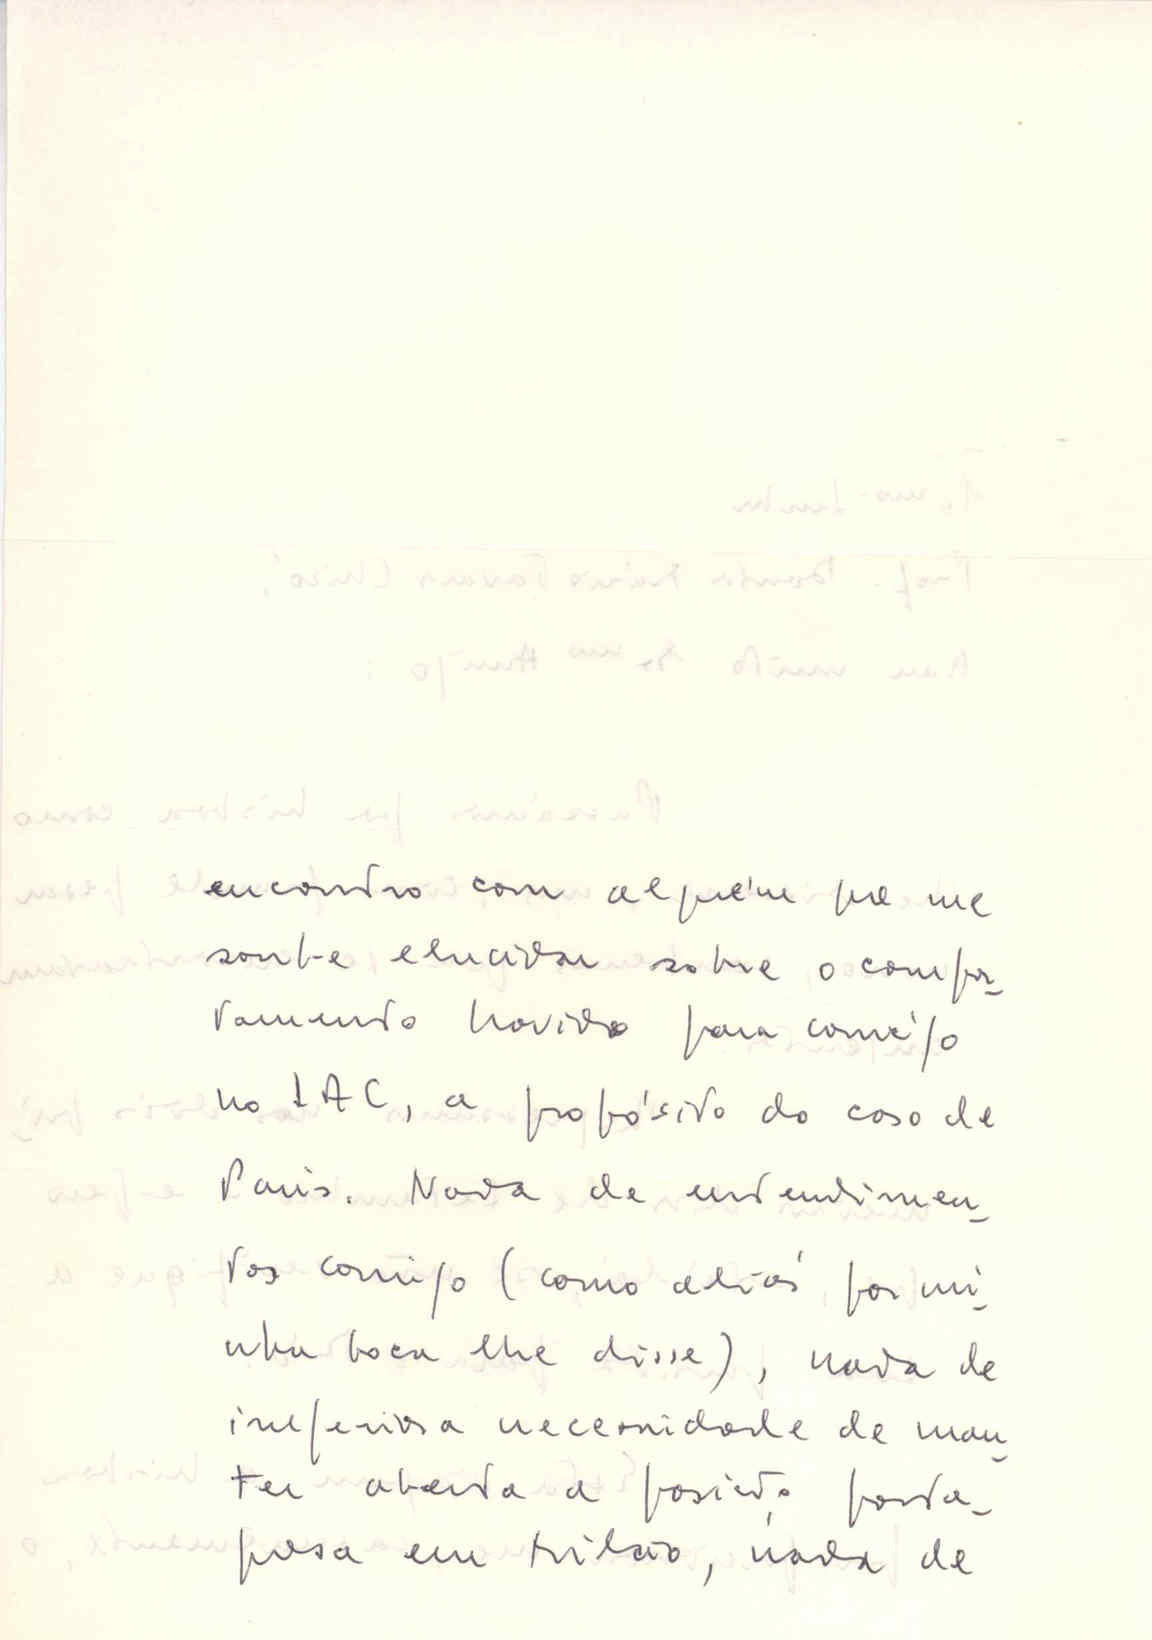 encontro com alguém que me
soube elucidar sobre o compor-
tamento havido para comigo
no IAC, a propósito do caso de
Paris. Nada de entendimen-
tos comigo (como aliás por mi-
nha boca lhe disse), nada de
imperiosa necessidade de man-
ter aberta a posição portu-
guesa em
nada de